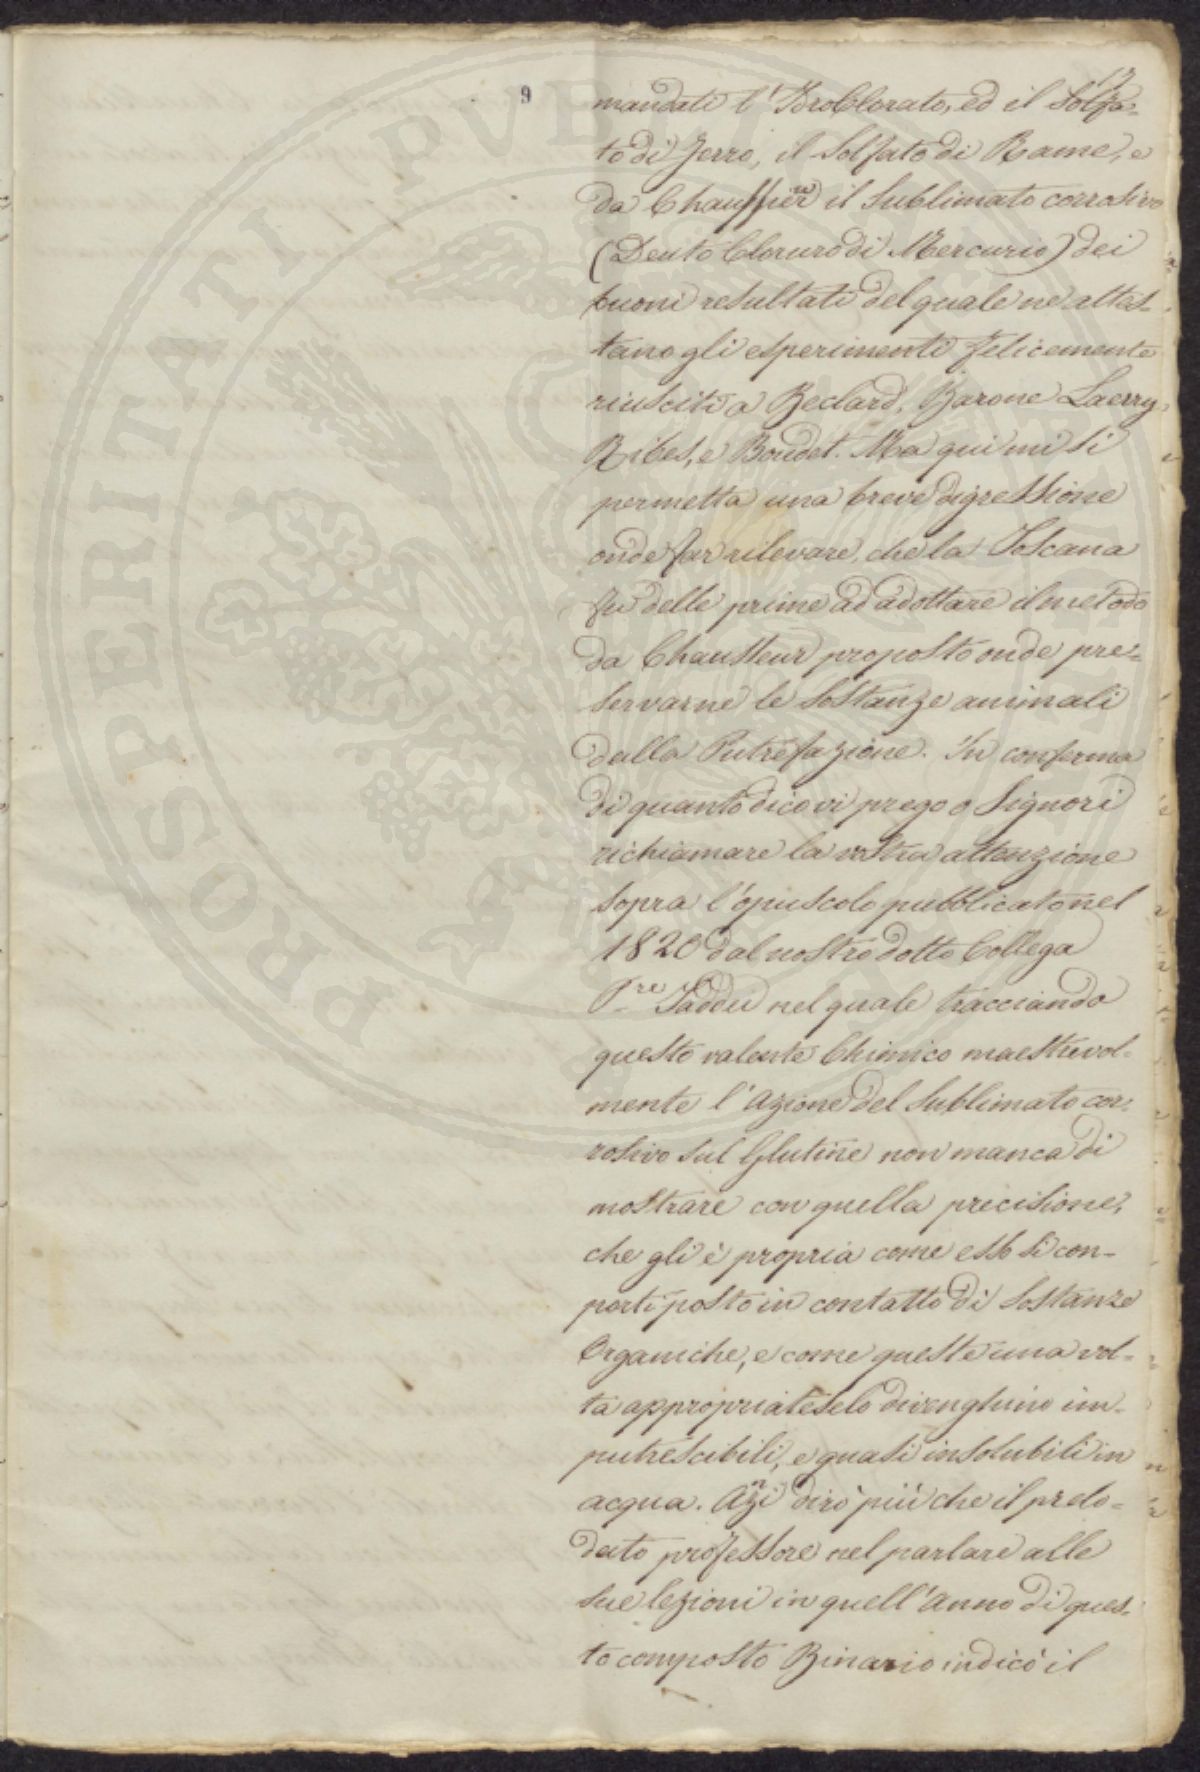 12
9
mandati l'IdroClorato, ed il Solfa=
to di Ferro, il Solfato di Rame, e
da Chaussier il Sublimato corrosivo
(Deuto Cloruro di Mercurio) dei
buoni resultati del quale ne attes-
tano gli esperimenti felicemente
riusciti a Beclard, Barone Laerry,
Ribes, e Boudet. Ma qui mi si
permetta una breve digressione
onde far rilevare, che la Toscana
fu delle prime ad adottare il metodo
da Chausseur proposto onde pre=
servarne le Sostanze animali
dalla Putrefazione. In conferma
di quanto dico vi prego o Signori
richiamare la vostra attenzione
sopra l'opuscolo pubblicato nel
1820 dal nostro dotto Collega
P.re Taddei nel quale tracciando
questo valente Chimico maestrevol=
mente l'Azione del Sublimato cor=
rosivo sul Glutine non manca di
mostrare con quella precisione,
che gli è propria come esso si con-
porti posto in contatto di Sostanze
Organiche, e come queste una vol=
ta appropriateselo divenghino im-
putrescibili, e quasi insolubili in
acqua. Anzi dirò più che il prelo=
dato professore nel parlare alle
sue lezioni in quell'Anno di ques-
to composto Binario indicò il
PROSPERITATI PVBLICAE